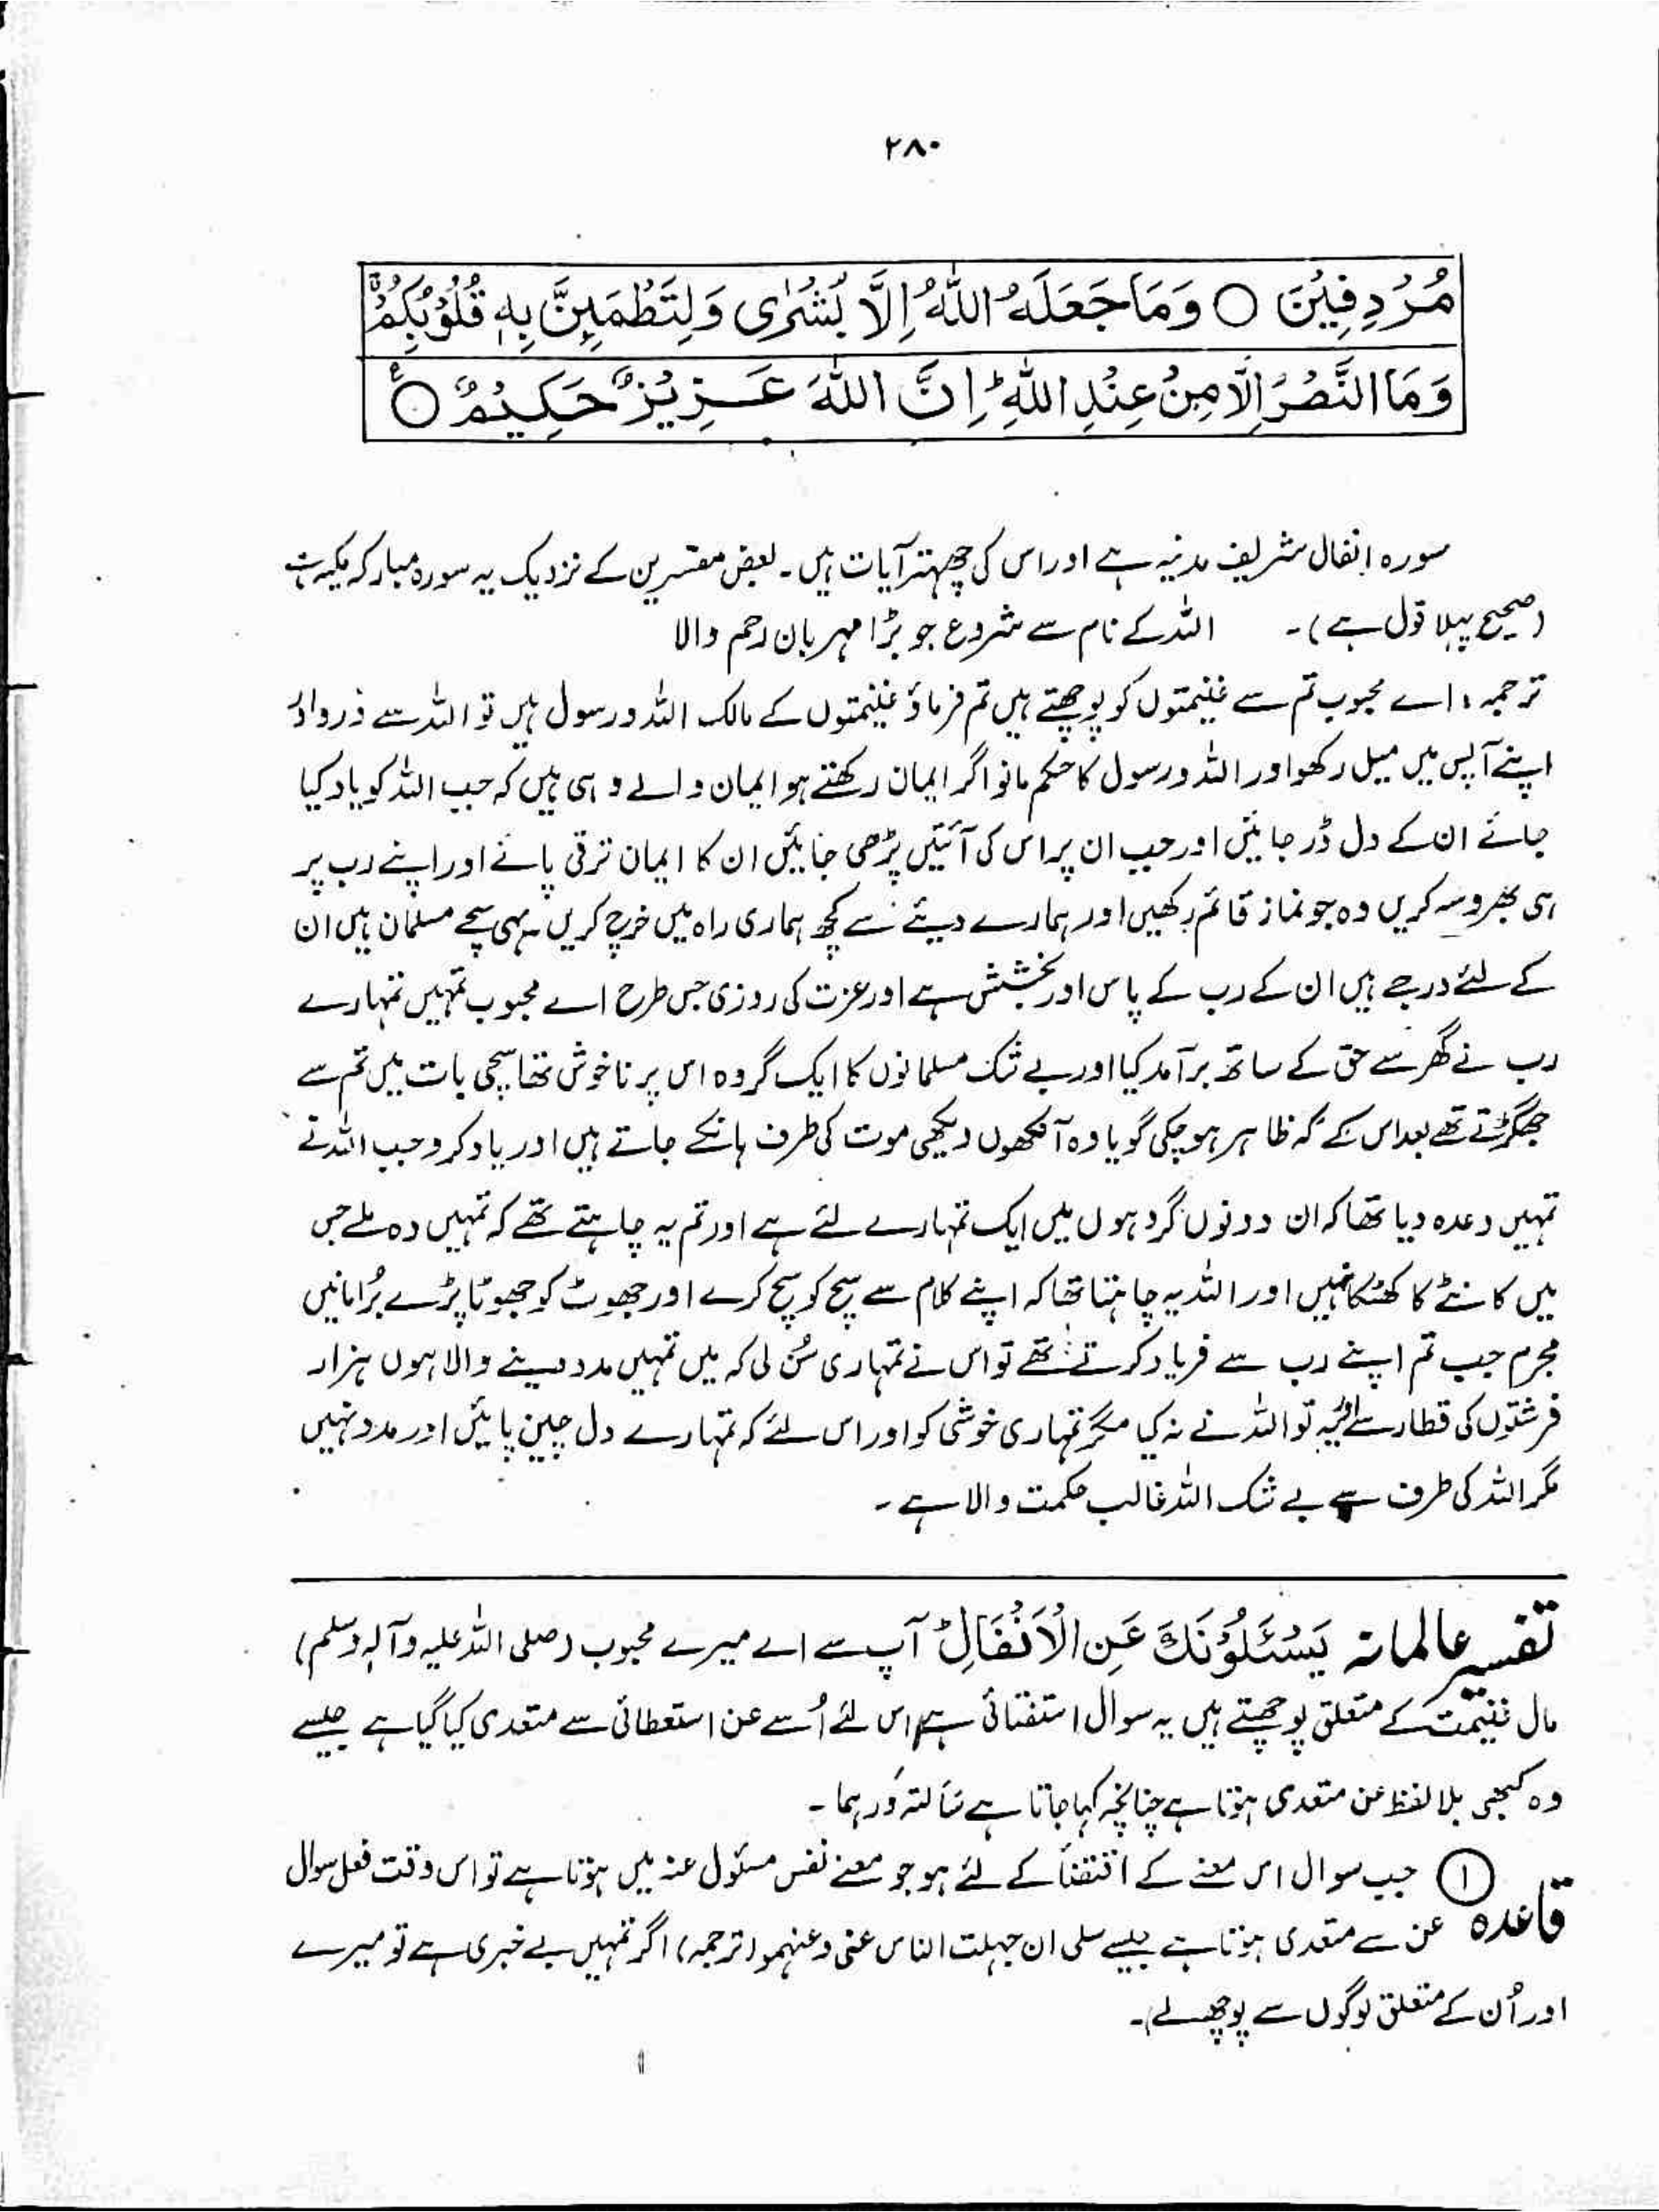 ۲۸۰
مُرْدِفِيْنَ ○ وَمَا جَعَلَهُ اللّٰهُ اِلَّا بُشْرٰى وَلِتَطْمَئِنَّ بِهٖ قُلُوْبُكُمْ
وَمَا النَّصْرُ اِلَّا مِنْ عِنْدِ اللّٰهِ ؕ اِنَّ اللّٰهَ عَزِيْزٌ حَكِيْمٌ ○
سورہ انفال شریف مدنیہ ہے اور اس کی چھہتر آیات ہیں۔ بعض مفسرین کے نزدیک یہ سورہ مبارکہ مکیہ ہے
(صحیح پہلا قول ہے)۔ اللہ کے نام سے شروع جو بڑا مہربان رحم والا
ترجمہ: اے محبوب تم سے غنیمتوں کو پوچھتے ہیں تم فرماؤ غنیمتوں کے مالک اللہ و رسول ہیں تو اللہ سے ڈرو اور
اپنے آپس میں میل رکھو اور اللہ و رسول کا حکم مانو اگر ایمان رکھتے ہو ایمان والے وہی ہیں کہ جب اللہ کو یاد کیا
جائے ان کے دل ڈر جائیں اور جب ان پر اس کی آئتیں پڑھی جائیں ان کا ایمان ترقی پائے اور اپنے رب پر
ہی بھروسہ کریں وہ جو نماز قائم رکھیں اور ہمارے دیئے سے کچھ ہماری راہ میں خرچ کریں یہی سچے مسلمان ہیں ان
کے لئے درجے ہیں ان کے رب کے پاس اور بخشش ہے اور عزت کی روزی جس طرح اے محبوب تمہیں تمہارے
رب نے گھر سے حق کے ساتھ برآمد کیا اور بے شک مسلمانوں کا ایک گروہ اس پر ناخوش تھا سچی بات میں تم سے
جھگڑتے تھے بعد اس کے کہ ظاہر ہو چکی گویا وہ آنکھوں دیکھی موت کی طرف ہانکے جاتے ہیں اور یاد کرو جب اللہ نے
تمہیں وعدہ دیا تھا کہ ان دونوں گروہوں میں ایک تمہارے لئے ہے اور تم یہ چاہتے تھے کہ تمہیں وہ ملے جس
میں کانٹے کا کھٹکا نہیں اور اللہ یہ چاہتا تھا کہ اپنے کلام سے سچ کو سچ کرے اور جھوٹ کو جھوٹا پڑے بُرا مانیں
مجرم جب تم اپنے رب سے فریاد کرتے تھے تو اس نے تمہاری سُن لی کہ میں تمہیں مدد دینے والا ہوں ہزار
فرشتوں کی قطار سے اور یہ تو اللہ نے نہ کیا مگر تمہاری خوشی کو اور اس لئے کہ تمہارے دل چین پائیں اور مدد نہیں
مگر اللہ کی طرف سے بے شک اللہ غالب حکمت والا ہے۔
تفسیر عالمانہ يَسْئَلُوْنَكَ عَنِ الْاَنْفَالِ ؕ آپ سے اے میرے محبوب (صلی اللہ علیہ وآلہ وسلم)
مال غنیمت کے متعلق پوچھتے ہیں یہ سوال استفتائی ہے اس لئے اُسے عن استعطائی سے متعدی کیا گیا ہے جیسے
وہ کبھی بلا لفظ عن متعدی ہوتا ہے چنانچہ کہا جاتا ہے سَالتہ دَرہما۔
قاعدہ ① جب سوال اس معنے کے اقتضاً کے لئے ہو جو معنے نفس مسئول عنہ میں ہوتا ہے تو اس وقت فعل سوال
عن سے متعدی ہوتا ہے جیسے سلی ان جہلت الناس عنی وعنہمو (ترجمہ) اگر تمہیں بے خبری ہے تو میرے
اور اُن کے متعلق لوگوں سے پوچھ لے)۔